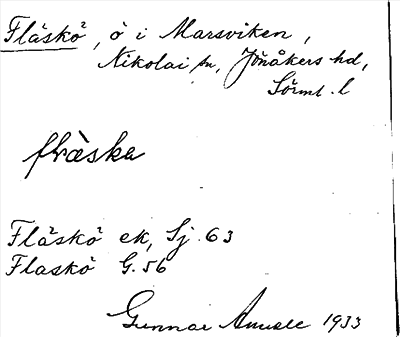 Fläskö, ö i Marsviken,
Nikolai sn, Jönåkers hd,
Sörml. l
fļrä̀ska
Fläskö ek, Sj. 63
Flaskö G. 56
Gunnar Amuele 1933